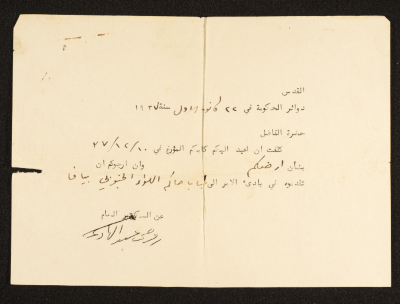 القدس
دوائر الحكومة في ٢٢ كانون الاول سنة ١٩٣٧
حضرة الفاضل
كلفت ان اعيد اليكم كتابكم المؤرخ في ٧٧/١٢/٢٠
بشأن ارضكم وان ارجوكم ان
تقدموه في بادىء الامر الى جناب حاكم اللواء الجنوبي بيافا
عن السكرتير العام